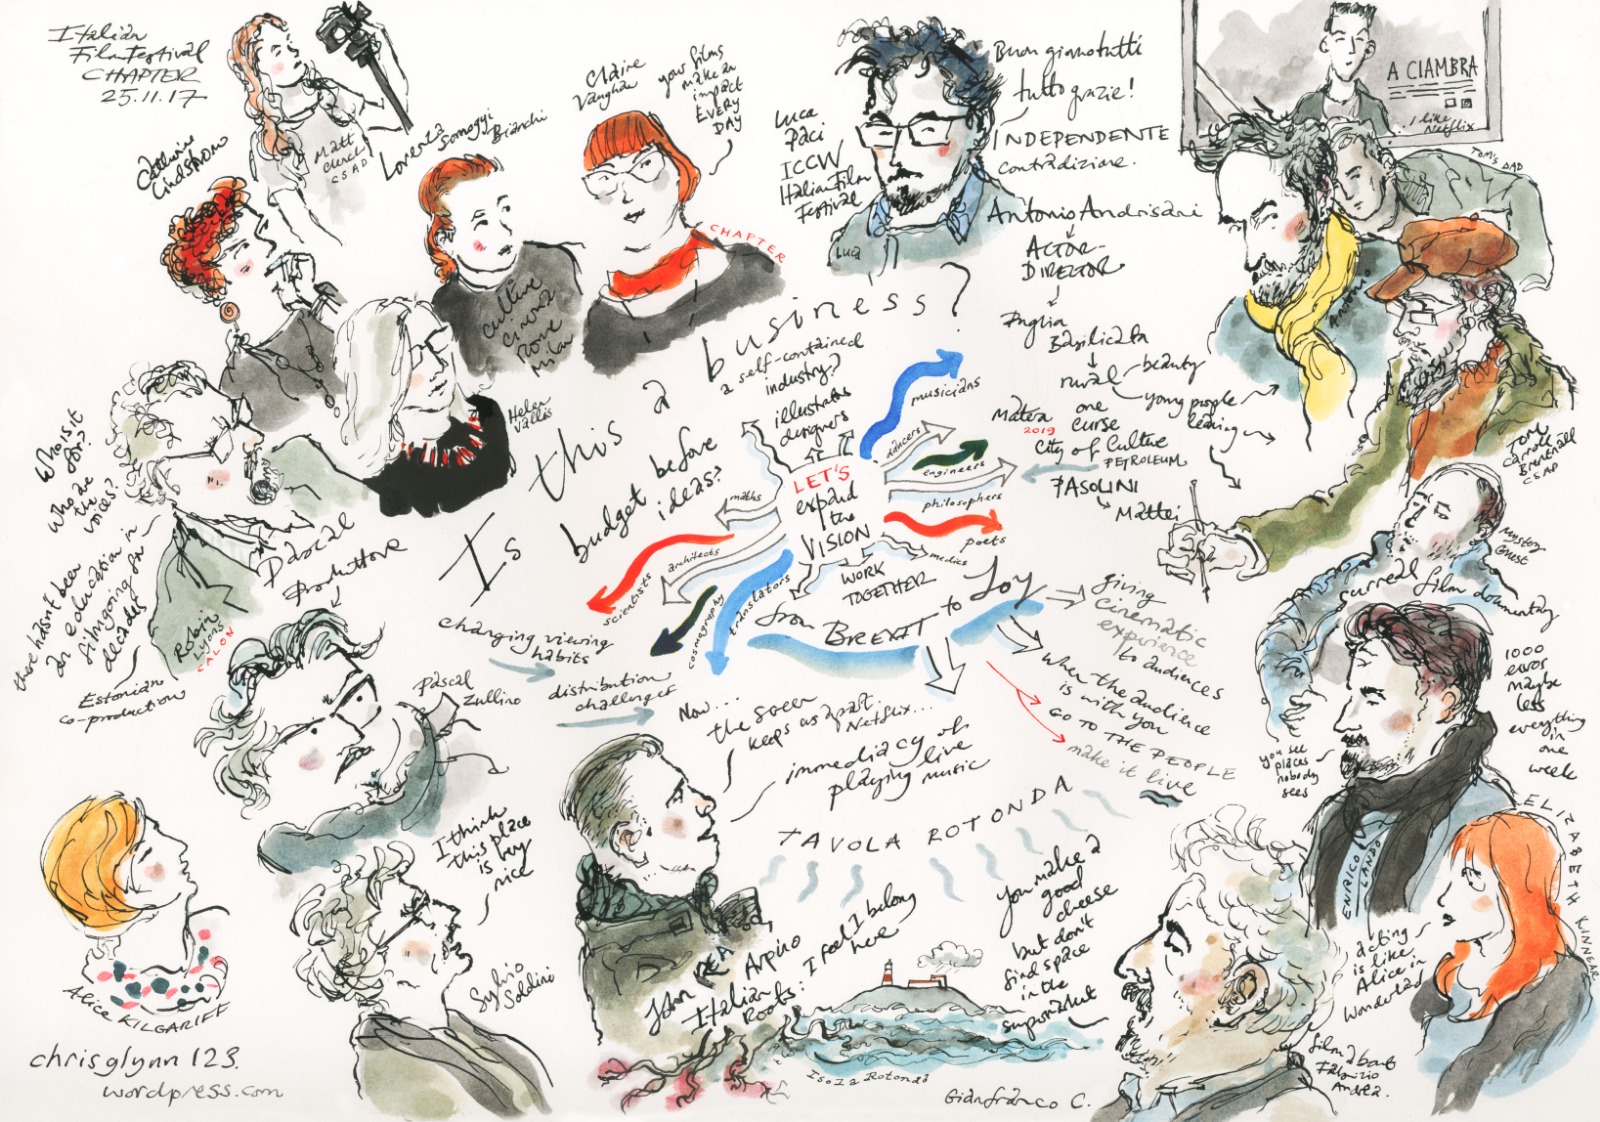 Italian
Film Festival
CHAPTER
25.11.17
Catherine
Lindstrom
Matt
CSAD
Lorenza
Somogyi
Bianchi
Claire
Vaughan
your films
make an
impact
EVERY
DAY
CHAPTER
Luca
Paci
ICCW
Italian Film
Festival
Luca
Buon giorno tutti
tutto grazie!
INDEPENDENTE
contradizione.
Antonio Andrisani
ACTOR-
DIRECTOR
Puglia
Basilicata
rural
beauty
young people
leaving
Matera
2019
one
curse
City of Culture
PETROLEUM
PASOLINI
Mattei
A CIAMBRA
I like
Netflix
TOM'S DAD
Antonio
Tom
CSAD
Mystery
Guest
Helen
Vallis
Is this a business?
a self-contained
industry?
budget before
ideas?
illustrators
designers
musicians
dancers
engineers
philosophers
poets
medics
maths
architects
scientists
cosmography
translators
LET'S
expand
the
VISION
WORK
TOGETHER
from BREXIT to Joy
giving
cinematic
experience
to audiences
When the audience
is with you
GO TO THE PEOPLE
make it live
Who is it
for?
Who are
the
voices?
there hasn't been
an education in
filmgoing for
decades
Robin
Lyons
CALON
Estonian
co-production
Pascal
Produttore
changing viewing
habits
distribution
challenges
Pascal
Zullino
Now...
the screen
keeps us apart
Netflix...
immediacy of
playing live
music
surreal film documentary
1000
euros
maybe
less
everything
in
one
week
you see
places
nobody
sees
ENRICO
LANDO
ELIZABETH KINNEAR
acting
is like
Alice in
Wonderland
film about
Fabrizio
Andrea.
TAVOLA ROTONDA
you make a
good
cheese
but don't
find space
in the
supermarket
I think
this place
is very
nice
Sylvio
Soldini
Alice KILGARIFF
John REA
Arpino
Italian
Roots:
I feel I belong
here
Isola Rotonda
Gianfranco C.
chrisglynn123.
wordpress.com